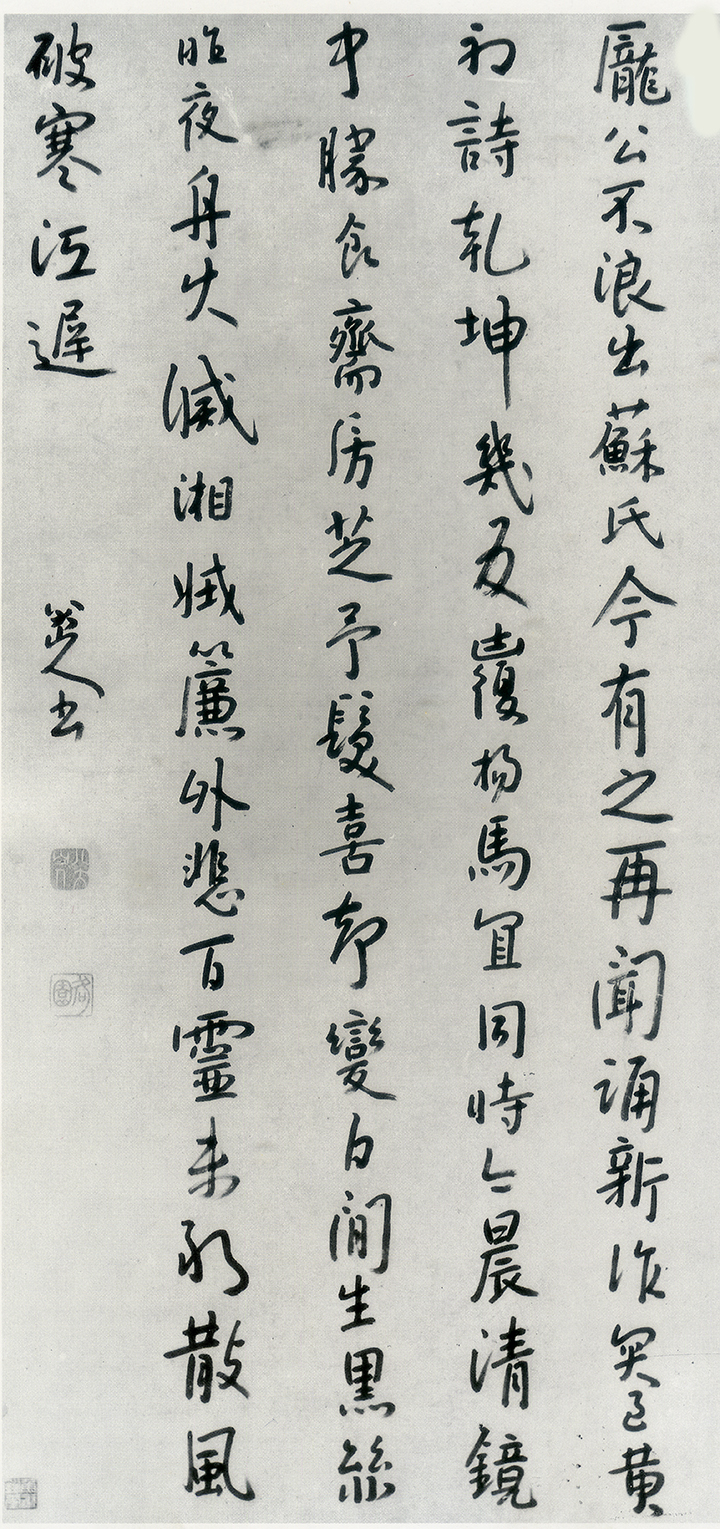 龐公不浪出蘇氏今有之再聞誦新作突過黃
初詩乾坤幾反覆揚馬宜同時今晨清鏡
中勝食齋房芝予髮喜却變白間生黑絲
昨夜舟火滅湘娥簾外悲百靈未敢散風
破寒江遲
八大山人書